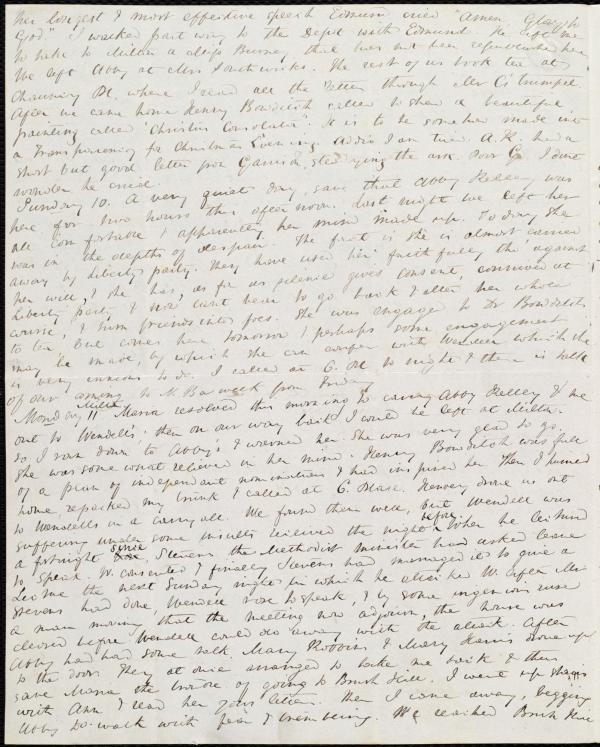 her longest & most effective speech Edmund cried "Amen, Glory to
God" I walked part way to the Depot with Edmund He left me
to take to Milton a Miss Burney that has not been
We left Abby at Mrs Southwicks. The rest of us took tea at
Chauncy Pl. where I read all the letter through Mr C's trumpet
After we came home Henry Bowditch called to show a beautiful
painting called "Christus Consolator". It is to be somehow made into
a Transparency for Christmas Evening. Addio I am tired. A.K. had a
short but good letter from Garrison, the ark. Poor G. I dont
wonder he cried.
Sunday 10. A very quiet day, save that Abby Kelley was
here for two hours this afternoon. Last night we left her
all comfortable & apparently her mind made up. To day she
was in the depths of despair. The fact is she is almost carried
away by liberty party. They have used her faithfully tho' against
her will, & she has, as far as silence gives consent, connived at
Liberty party & now can't bear to go back & alter her whole
course, & turn friends into foes. She was engaged to Dr Bowditch's
to tea but comes here tomorrow & perhaps some engagement
may be made, by which she can confer with Wendell which she
is very anxious to do. I called at C. Pl to night & there is talk
of our among to N. B a week from Friday
Monday 11 Maria resolved this morning to carry Abby Kelley & me
out to Wendell's, then on our way back I could be left at Milla.
so I ran down to Abby's & warned her. She was very glad to go.
She was somewhat relieved in her mind. Henry Bowditch was full
of a plan of independent nominations & had inspired her. Then I hurried
home, repacked my trunk & called at C. Place. Hervey drove us out
to Wendells in a carryall. We found them well, but Wendell was
suffering under some insults received the night before. When he lectured
a fortnight since Stevens the Methodist minister had asked leave
to speak. W. consented & finally Stevens had managed it to give a
Lecture the next Sunday night in which he attacked W. After Mr
Stevens had done, Wendell rose to speak, & by some ingenious ruse
a man moving that the meeting now adjourn, the house was
closed before Wendell could do away with the attack. After
Abby had had some talk Mary Robbins & Mary Harris drove up
to the door. They at once arranged to take me back & thus
save Maria the trouble of going to Brush Hill. I went up stairs
with Ann & read her your letter. Then I came away, begging
Abby to walk with fear & trembling. We reached Brush Hill